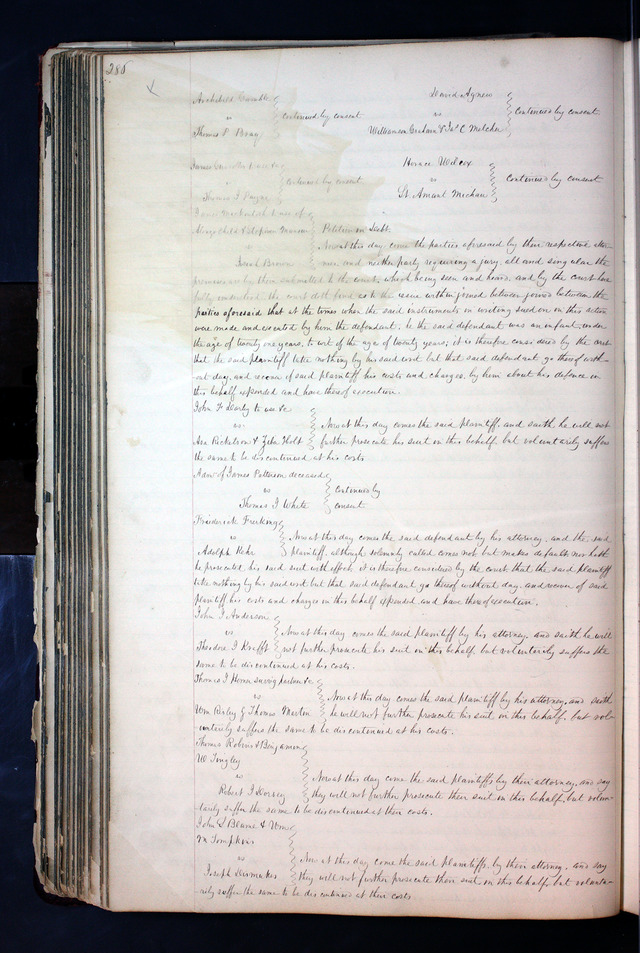 285
Archibald Gamble
vs
Thomas P. Bray
Continued by consent
David Agnew
vs
Williamson Graham & Jas. C Melcher
Continued by consent
James
vs
Thomas J Payne
Continued by consent
Horace Wilcox
vs
St. Amant Michau
Continued by consent
use of
Child & Stephen
vs
Josiah Brown
Petition in Debt.
Now at this day come the parties aforesaid by their respective attor-
nies, and neither party requiring a jury, all and singular the
premises are by them submitted to the court, which being seen and heard, and by the court here
fully considered the court doth find as to the issue within joined between joined between the
parties aforesaid that at the times when the said instruments in writing sued on in this action
were made and executed by him the defendant, he the said defendant was an infant under
the age of twenty one years, to wit of the age of twenty years; it is therefore considered by the court
that the said plaintiff take nothing by his said writ but that said defendant go thereof with-
out day, and recover of said plaintiff his costs and charges, by him about his defence in
this behalf expended and have thereof execution.
John F Darby to use &c
vs.
Asa Ricketson & Zeba Holt
Now at this day comes the said plaintiff, and saith he will not
further prosecute his suit in this behalf, but voluntarily suffers
the same to be discontinued at his costs
Adm. of James Patterson deceased
vs
Thomas J White
Continued by
consent
Fraiderick Freeking
vs
Adolph Rahr
Now at this day comes the said defendant by his attorney, and the said
plaintiff, although solemnly called comes not but makes default, nor hath
he prosecuted his said suit with effect, it is therefore considered by the court that the said plaintiff
take nothing by his said writ but that said defendant go thereof without day, and recover of said
plaintiff his costs and charges in this behalf expended and have thereof execution.
John J Anderson
vs
Theodore J
Now at this day comes the said plaintiff by his attorney, and saith he will
not further prosecute his suit in this behalf but voluntarily suffers the
same to be discontinued at his costs.
Thomas J Horne surviving partner &c
vs
Wm Risley & Thomas Marton
Now at this day comes the said plaintiff by his attorney, and saith
he will not further prosecute his suit in this behalf, but vol-
untarily suffers the same to be discontinued at his costs.
Thomas Robins & Benjamin
W. Tingley
vs
Robert J Dorsey
Now at this day come the said plaintiffs by their attorney, and say
they will not further prosecute their suit in this behalf, but volun-
tarily suffer the same to be discontinued at their costs.
John S Blaine & Wm
M Tompkins
vs
Joseph Dismukes
Now at this day come the said plaintiffs, by their attorney, and say
they will not further prosecute their suit in this behalf, but volunta-
rily suffer the same to be discontinued at their costs.